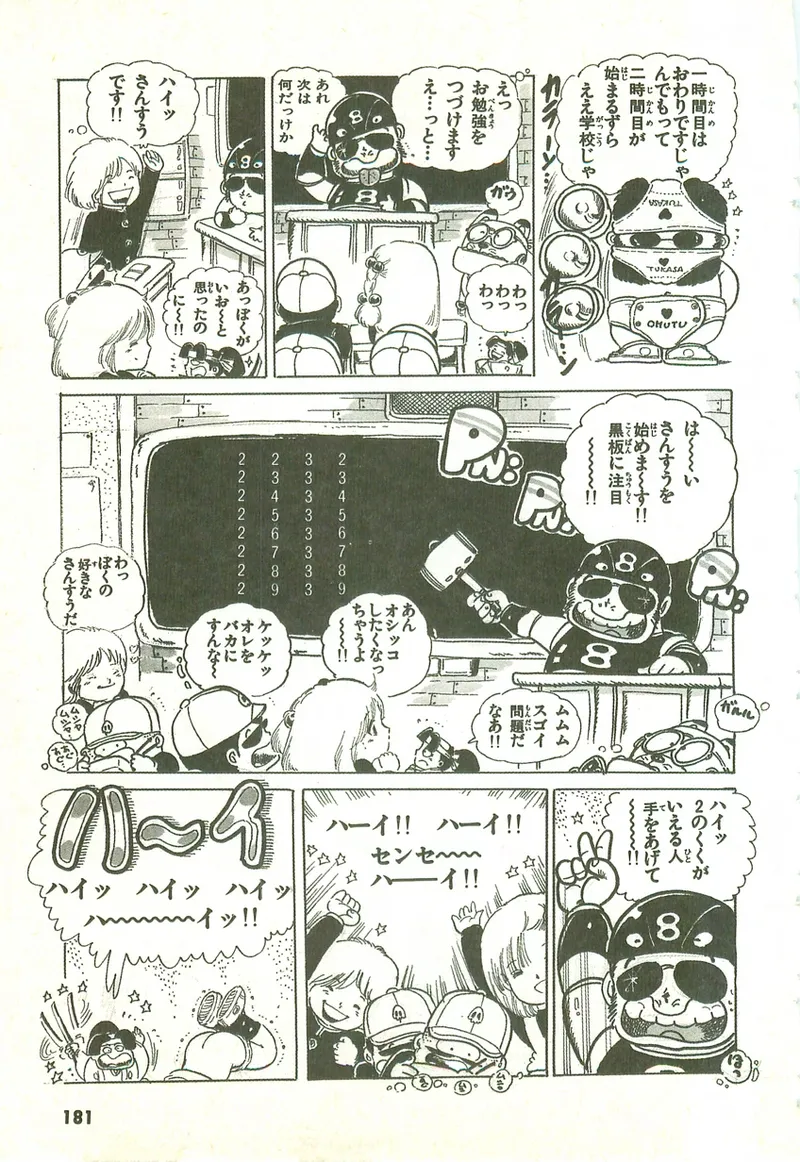 一時間目は
おわりですじゃ
んでもって
二時間目が
始まるずら
ええ学校じゃ
カラーン…
TUKASA
TUKASA
OHUTU
えっ
お勉強を
つづけます
え…っと…
あれ
次は
何だっけか
8
8
ガウ
わっ
わっ
ハイッ
さんすう
です!!
8
あっぽくが
いお〜と
思ったの
に〜!!
は〜〜い
さんすうを
始めま〜す!!
黒板に注目
〜〜〜〜!!
PんN:
PんN:
PんN:
2 2 3 2
2 3 3 3
2 4 3 4
2 5 3 5
2 6 3 6
2 7 3 7
2 8 3 8
2 9 3 9
8
8
わっ
ぼくの
好きな
さんすうだ
ケッケッ
オレを
バカに
すんな〜
あん
オシッコ
したくなっ
ちゃうよ
〜〜!!
ムムム
スゴイ
問題だ
なあ!!
ガルル
ムシャ
ムシャ
ハイッ
2の〜くが
いえる人
手をあげて
〜〜〜!!
8
ハーイ!! ハーイ!!
センセ〜〜〜
ハ──イ!!
ハ〜イ
ハイッ ハイッ ハイッ
ハ〜〜〜〜〜イッ!!
181